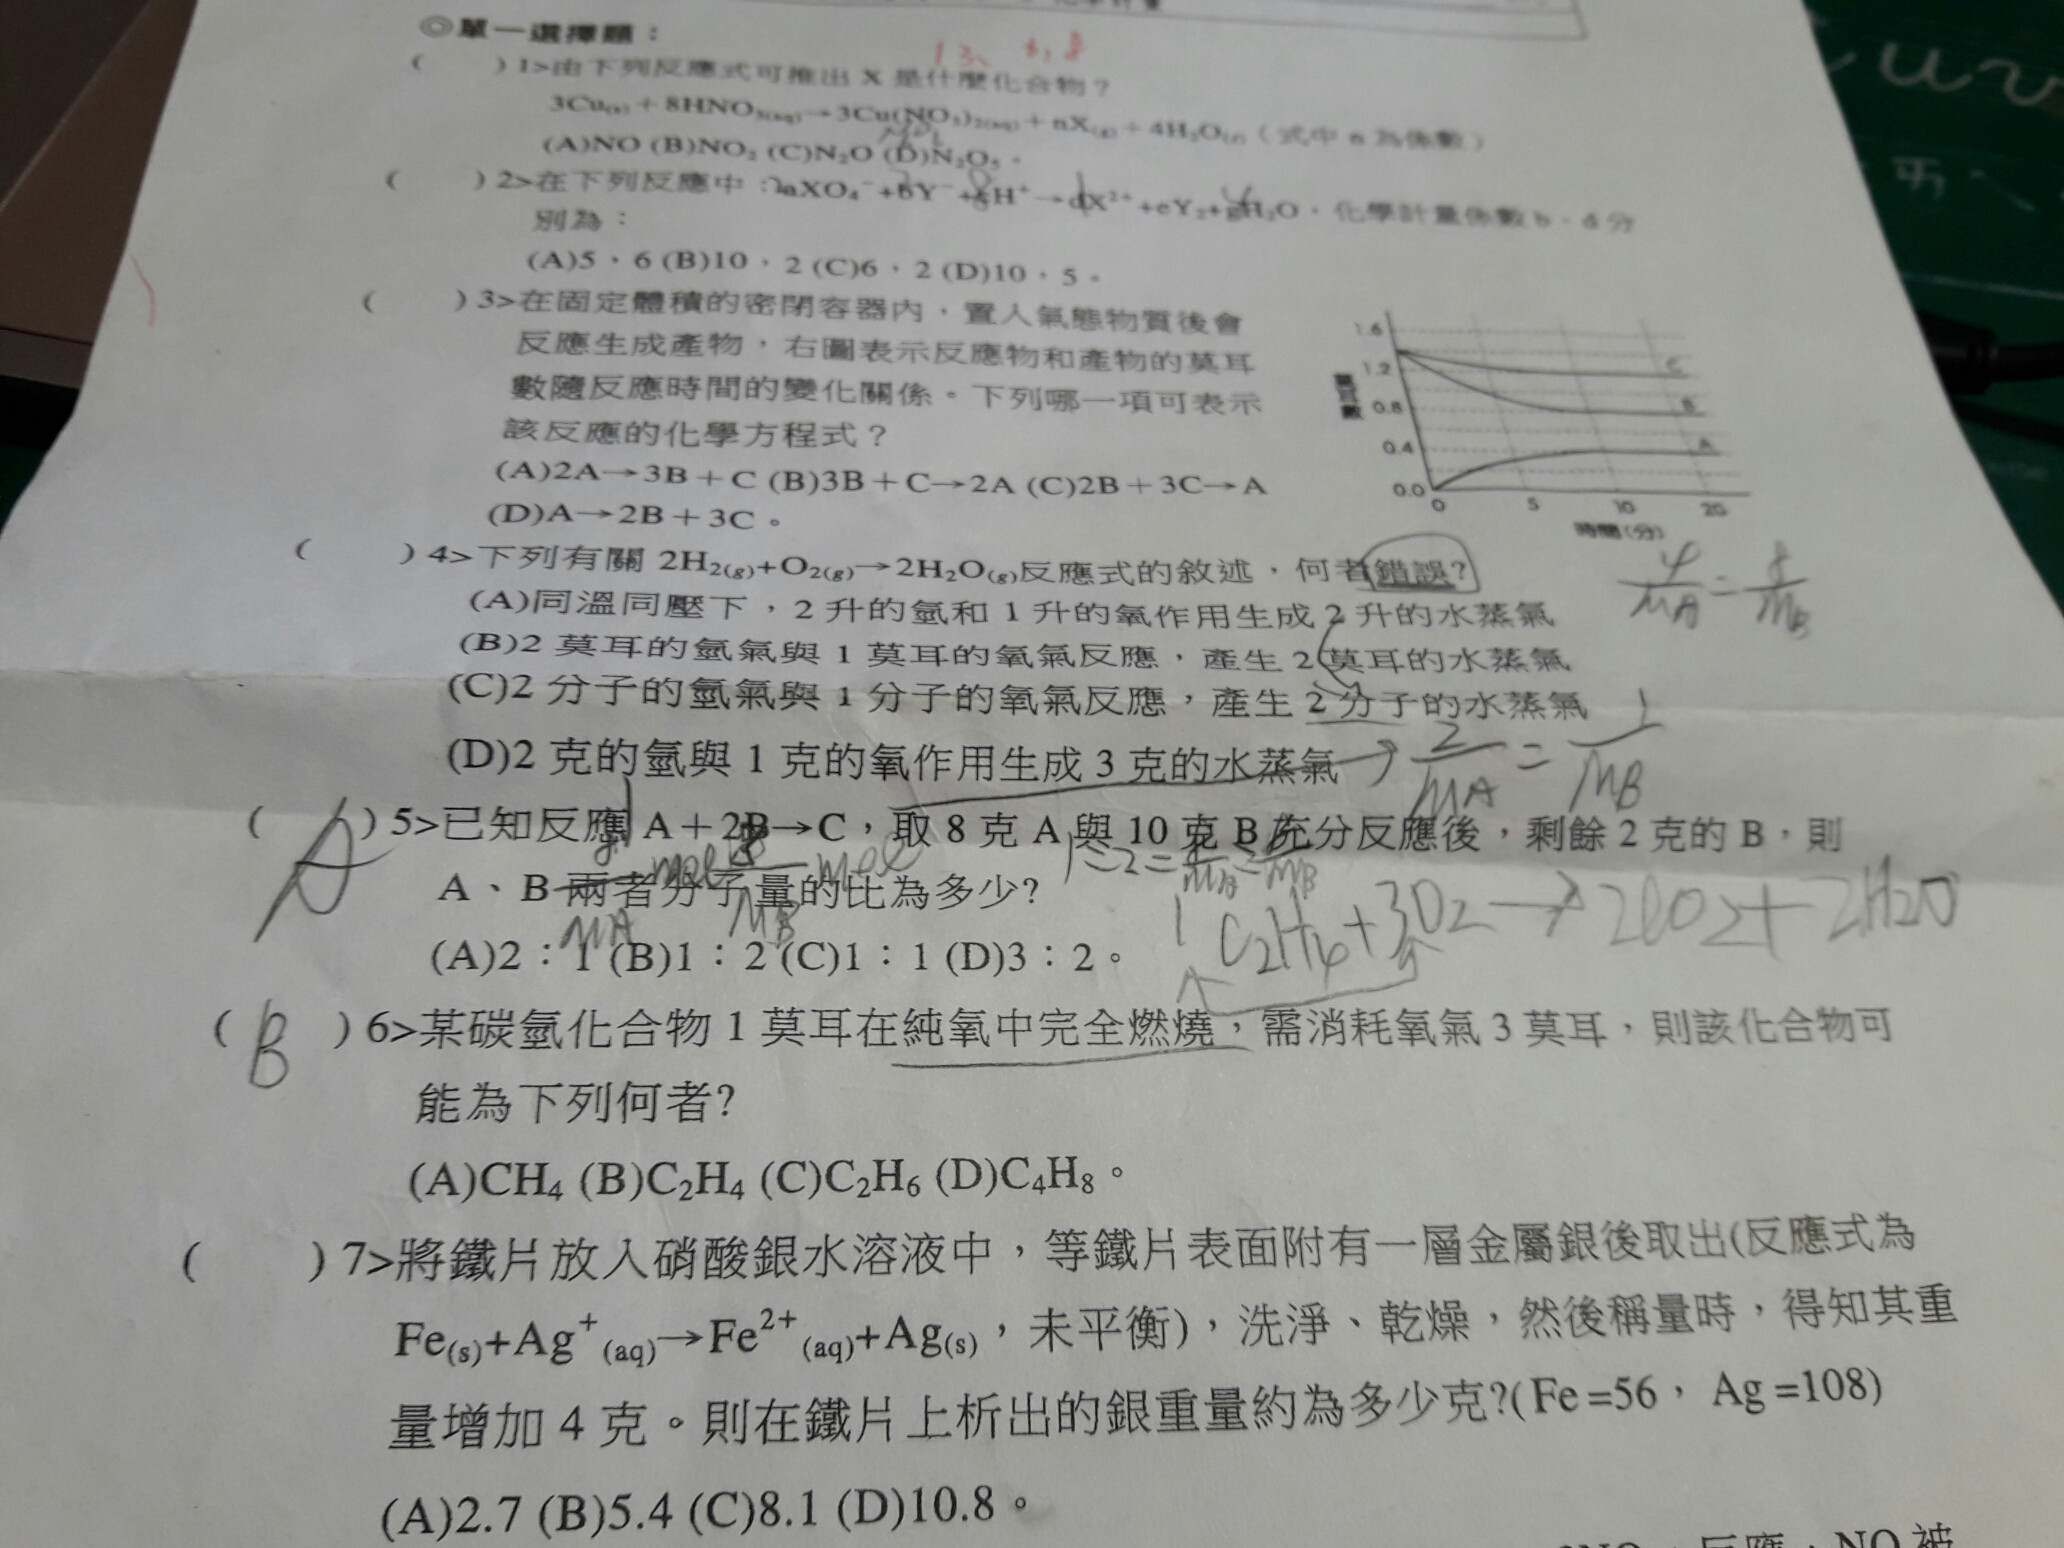 ◎單一選擇題：
1 3、
( ) 1>由下列反應式可推出 X 是什麼化合物？
3Cu(s) + 8HNO3(aq)→3Cu(NO3)2(aq) + nX(g) + 4H2O(l)（式中 n 為係數）
(A)NO (B)NO2 (C)N2O (D)N2O5。
( ) 2>在下列反應中：aXO4⁻+bY⁻+cH⁺→dX²⁺+eY2+gH2O，化學計量係數 b、d 分
別為：
(A)5，6 (B)10，2 (C)6，2 (D)10，5。
( ) 3>在固定體積的密閉容器內，置入氣態物質後會
反應生成產物，右圖表示反應物和產物的莫耳
數隨反應時間的變化關係。下列哪一項可表示
該反應的化學方程式？
(A)2A→3B＋C (B)3B＋C→2A (C)2B＋3C→A
(D)A→2B＋3C。
1.6
1.2
0.8
0.4
0.0
莫耳數
C
B
A
0 5 10 20
時間(分)
( ) 4>下列有關 2H2(g)+O2(g)→2H2O(g)反應式的敘述，何者錯誤?
4/MA = 8/MB
(A)同溫同壓下，2 升的氫和 1 升的氧作用生成 2 升的水蒸氣
(B)2 莫耳的氫氣與 1 莫耳的氧氣反應，產生 2 莫耳的水蒸氣
(C)2 分子的氫氣與 1 分子的氧氣反應，產生 2 分子的水蒸氣
(D)2 克的氫與 1 克的氧作用生成 3 克的水蒸氣 → 2/MA = 1/MB
( A ) 5>已知反應 A＋2B→C，取 8 克 A 與 10 克 B 充分反應後，剩餘 2 克的 B，則
8/MA mol 8/MB mol 1:2=8/MA:8/MB
A、B 兩者分子量的比為多少?
(A)2：1 (B)1：2 (C)1：1 (D)3：2。
1 C2H4+3O2→2CO2+2H2O
( B ) 6>某碳氫化合物 1 莫耳在純氧中完全燃燒，需消耗氧氣 3 莫耳，則該化合物可
能為下列何者?
(A)CH4 (B)C2H4 (C)C2H6 (D)C4H8。
( ) 7>將鐵片放入硝酸銀水溶液中，等鐵片表面附有一層金屬銀後取出(反應式為
Fe(s)+Ag⁺(aq)→Fe²⁺(aq)+Ag(s)，未平衡)，洗淨、乾燥，然後稱量時，得知其重
量增加 4 克。則在鐵片上析出的銀重量約為多少克?(Fe=56， Ag=108)
(A)2.7 (B)5.4 (C)8.1 (D)10.8。
反應，NO 被